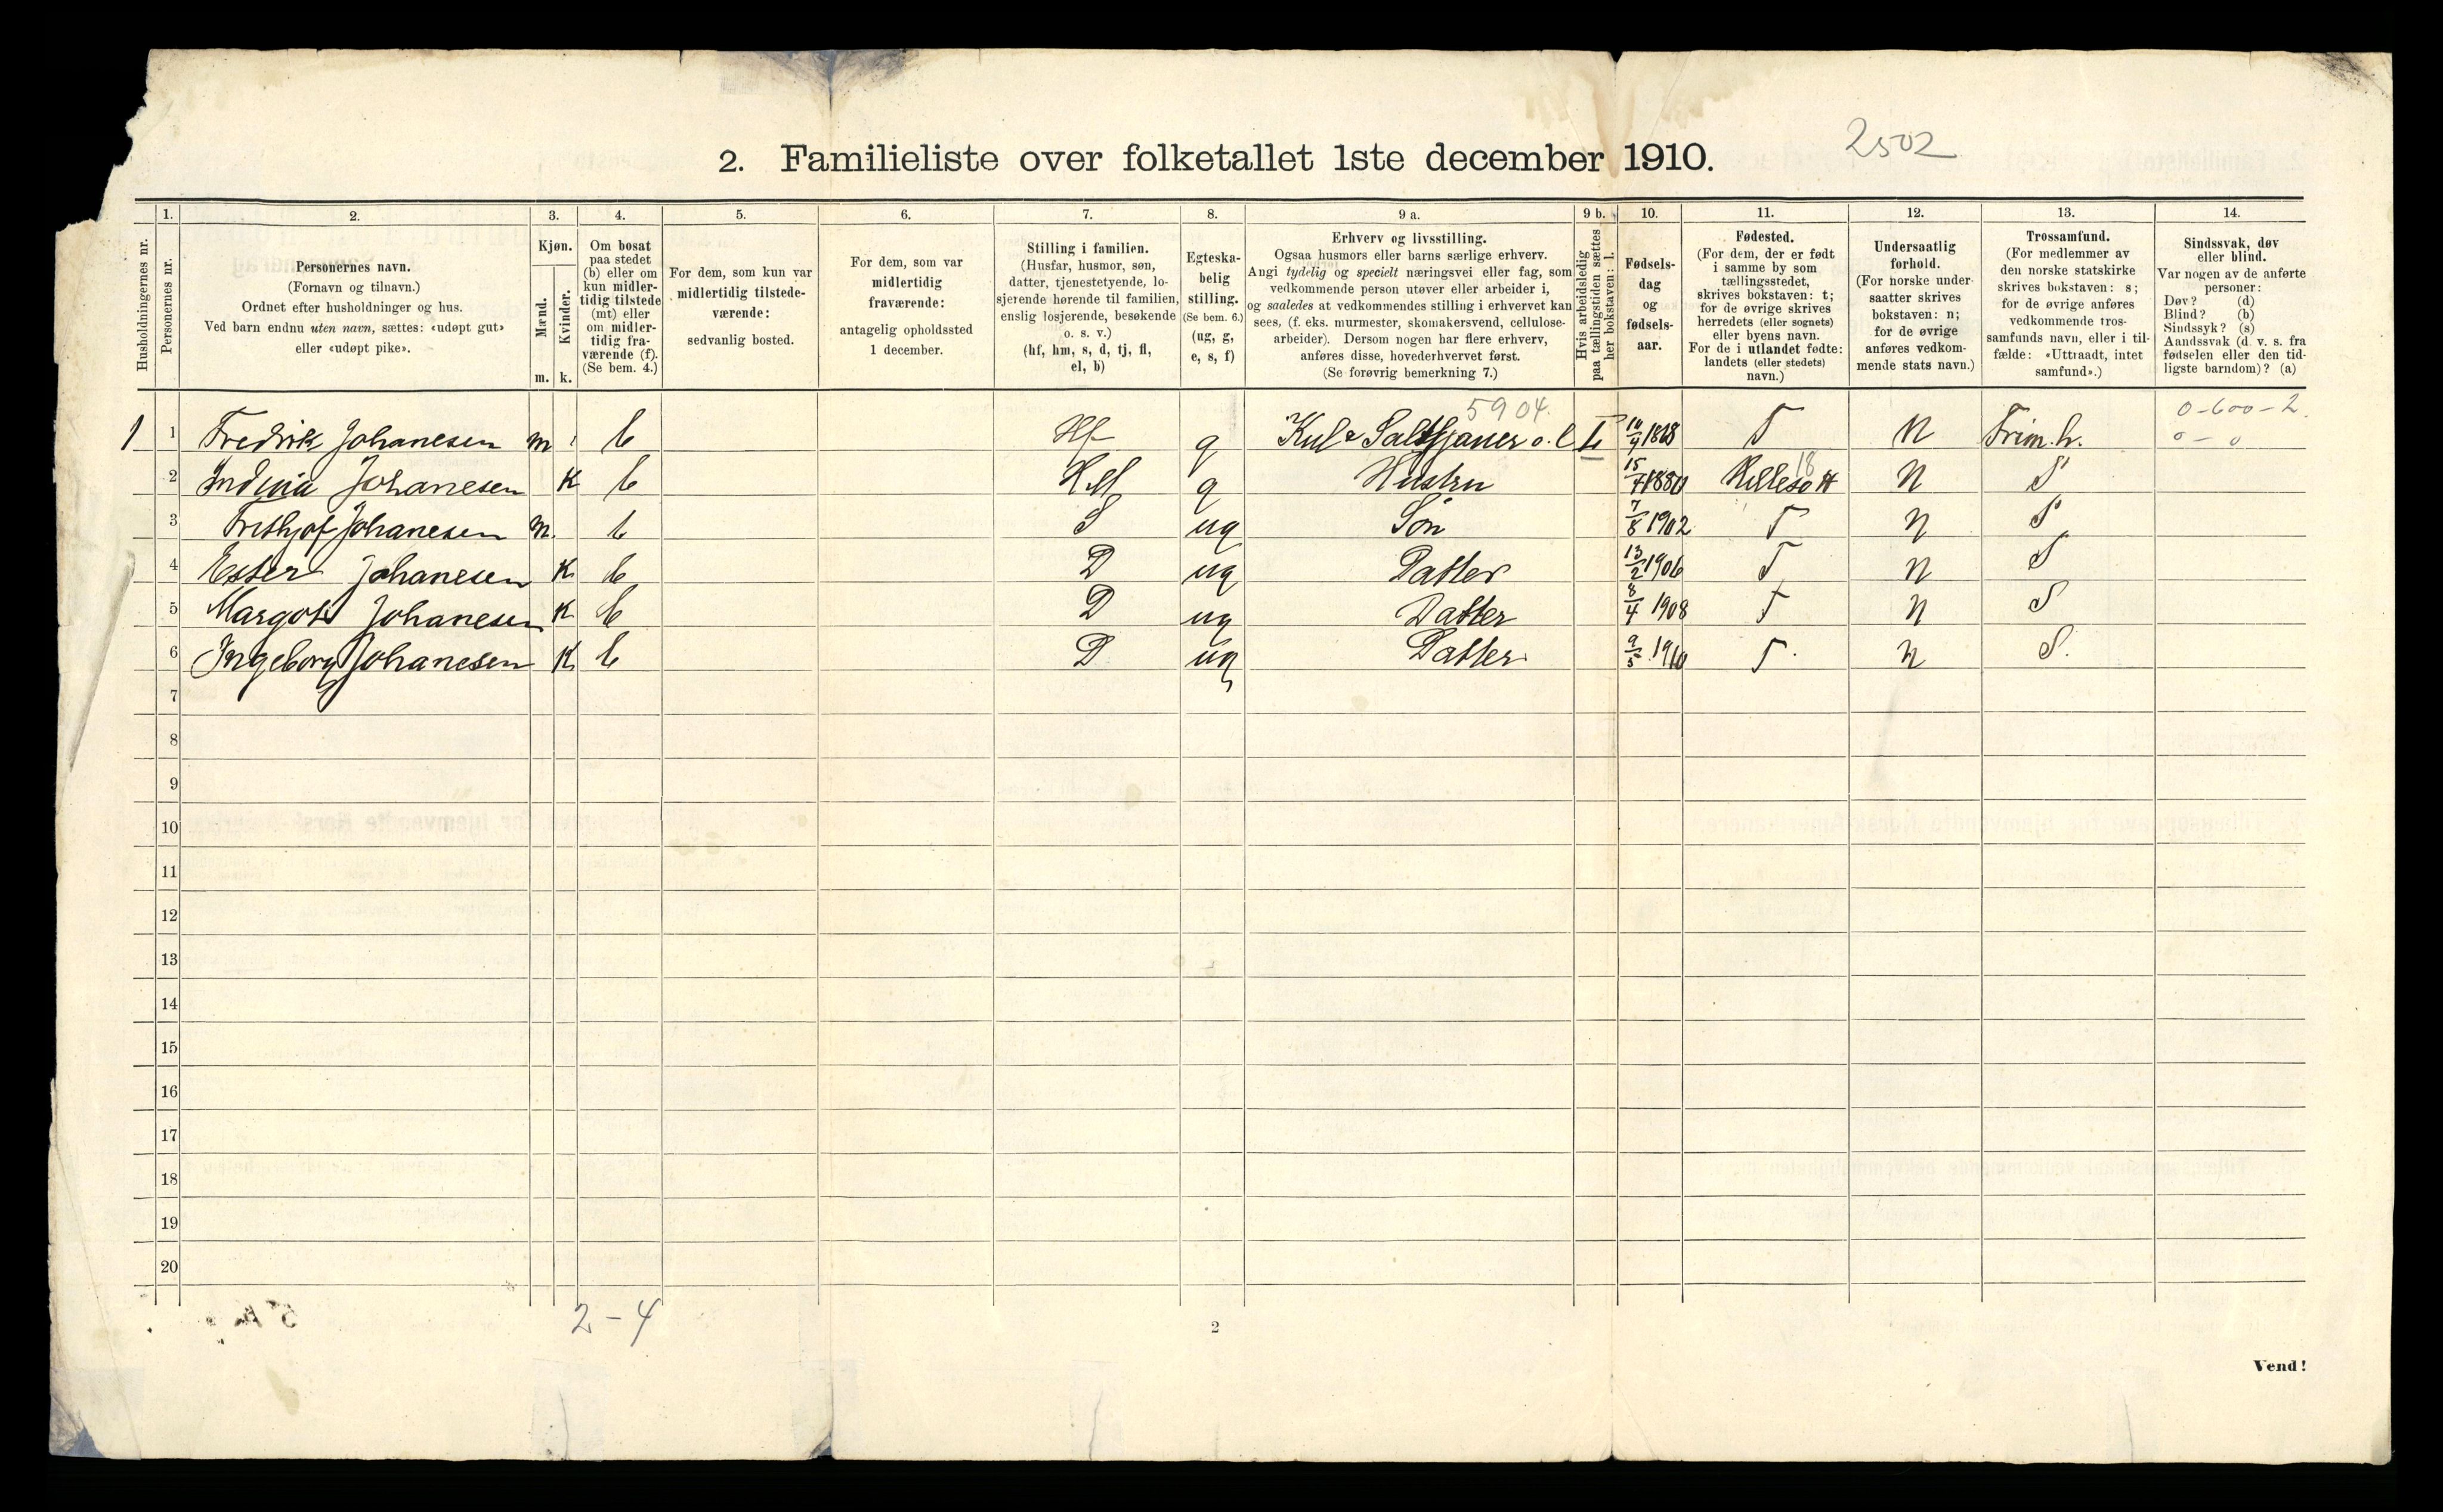 2502
2. Familieliste over folketallet 1ste december 1910.
Husholdningernes nr.
1.
Personernes nr.
2.
Personernes navn.
(Fornavn og tilnavn.)
Ordnet efter husholdninger og hus.
Ved barn endnu uten navn, sættes: «udøpt gut»
eller «udøpt pike».
3.
Kjøn.
Mænd.
m.
Kvinder.
k.
4.
Om bosat
paa stedet
(b) eller om
kun midler-
tidig tilstede
(mt) eller
om midler-
tidig fra-
værende (f).
(Se bem. 4.)
5.
For dem, som kun var
midlertidig tilstede-
værende:
sedvanlig bosted.
6.
For dem, som var
midlertidig
fraværende:
antagelig opholdssted
1 december.
7.
Stilling i familien.
(Husfar, husmor, søn,
datter, tjenestetyende, lo-
sjerende hørende til familien,
enslig losjerende, besøkende
o. s. v.)
(hf, hm, s, d, tj, fl,
el, b)
8.
Egteska-
belig
stilling.
(Se bem. 6.)
(ug, g,
e, s, f)
9 a.
Erhverv og livsstilling.
Ogsaa husmors eller barns særlige erhverv.
Angi tydelig og specielt næringsvei eller fag, som
vedkommende person utøver eller arbeider i,
og saaledes at vedkommendes stilling i erhvervet kan
sees, (f. eks. murmester, skomakersvend, cellulose-
arbeider). Dersom nogen har flere erhverv,
anføres disse, hovederhvervet først.
(Se forøvrig bemerkning 7.)
9 b.
Hvis arbeidsledig
paa tællingstiden sættes
her bokstaven: l.
10.
Fødsels-
dag
og
fødsels-
aar.
11.
Fødested.
(For dem, der er født
i samme by som
tællingsstedet,
skrives bokstaven: t;
for de øvrige skrives
herredets (eller sognets)
eller byens navn.
For de i utlandet fødte:
landets (eller stedets)
navn.)
12.
Undersaatlig
forhold.
(For norske under-
saatter skrives
bokstaven: n;
for de øvrige
anføres vedkom-
mende stats navn.)
13.
Trossamfund.
(For medlemmer av
den norske statskirke
skrives bokstaven: s;
for de øvrige anføres
vedkommende tros-
samfunds navn, eller i til-
fælde: «Uttraadt, intet
samfund».)
14.
Sindssvak, døv
eller blind.
Var nogen av de anførte
personer:
Døv? (d)
Blind? (b)
Sindssyk? (s)
Aandssvak (d. v. s. fra
fødselen eller den tid-
ligste barndom)? (a)
5904. 0-600-2.
1 1 Fredrik Johanesen m b Hf g Kul & Saltsjauer o. l 10/9 T N Frim.h. 0-0
2 Johanesen K b HM g Hustru 15/4 1880 18 N S
3 Frithjof Johanesen m. b S ug Sön 7/8 1902 T N S
4 Ester Johanesen K b D ug Datter 13/2 1906 T N S
5 Margot Johanesen K b D ug Datter 8/4 1908 T N S
6 Ingeborg Johanesen K b D ug Datter 9/5 1910 T. N S.
7
8
9
10
11
12
13
14
15
16
17
18
19
20
2-4
2
Vend!